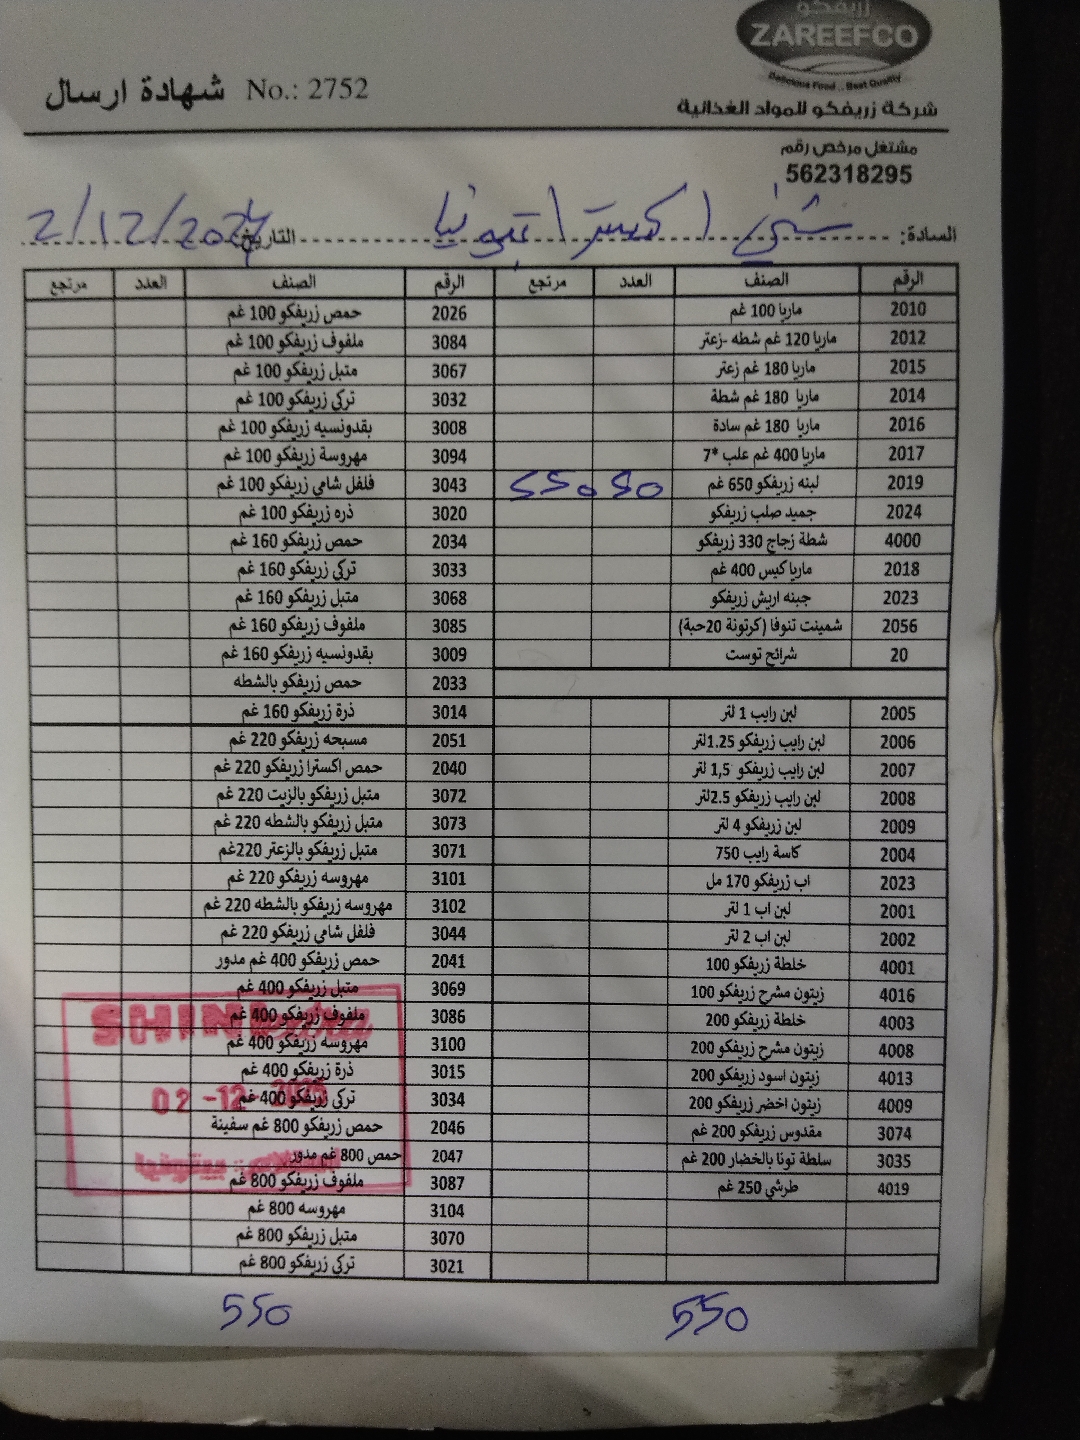 زريفكو
ZAREEFCO
Delicious Food .. Best Quality
شهادة ارسال No.: 2752
شركة زريفكو للمواد الغذائية
مشتغل مرخص رقم
562318295
السادة: شني اكسترا بيتونيا التاريخ: 2/12/2024
الرقم الصنف العدد مرتجع الرقم الصنف العدد مرتجع
2010 ماريا 100 غم 2026 حمص زريفكو 100 غم
2012 ماريا 120 غم شطه -زعتر 3084 ملفوف زريفكو 100 غم
2015 ماريا 180 غم زعتر 3067 متبل زريفكو 100 غم
2014 ماريا 180 غم شطة 3032 تركي زريفكو 100 غم
2016 ماريا 180 غم سادة 3008 بقدونسيه زريفكو 100 غم
2017 ماريا 400 غم علب *7 3094 مهروسة زريفكو 100 غم
2019 لبنه زريفكو 650 غم 50 550 3043 فلفل شامي زريفكو 100 غم
2024 جميد صلب زريفكو 3020 ذره زريفكو 100 غم
4000 شطة زجاج 330 زريفكو 2034 حمص زريفكو 160 غم
2018 ماريا كيس 400 غم 3033 تركي زريفكو 160 غم
2023 جبنه اريش زريفكو 3068 متبل زريفكو 160 غم
2056 شمينت تنوفا (كرتونة 20حبة) 3085 ملفوف زريفكو 160 غم
20 شرائح توست 3009 بقدونسيه زريفكو 160 غم
2033 حمص زريفكو بالشطه
2005 لبن رايب 1 لتر 3014 ذرة زريفكو 160 غم
2006 لبن رايب زريفكو 1.25لتر 2051 مسبحه زريفكو 220 غم
2007 لبن رايب زريفكو 1,5 لتر 2040 حمص اكسترا زريفكو 220 غم
2008 لبن رايب زريفكو 2.5لتر 3072 متبل زريفكو بالزيت 220 غم
2009 لبن زريفكو 4 لتر 3073 متبل زريفكو بالشطه 220 غم
2004 كاسة رايب 750 3071 متبل زريفكو بالزعتر 220غم
2023 اب زريفكو 170 مل 3101 مهروسه زريفكو 220 غم
2001 لبن اب 1 لتر 3102 مهروسه زريفكو بالشطه 220 غم
2002 لبن اب 2 لتر 3044 فلفل شامي زريفكو 220 غم
4001 خلطة زريفكو 100 2041 حمص زريفكو 400 غم مدور
4016 زيتون مشرح زريفكو 100 3069 متبل زريفكو 400 غم
4003 خلطة زريفكو 200 3086 ملفوف زريفكو 400 غم
4008 زيتون مشرح زريفكو 200 3100 مهروسه زريفكو 400 غم
4013 زيتون اسود زريفكو 200 3015 ذرة زريفكو 400 غم
4009 زيتون اخضر زريفكو 200 3034 تركي زريفكو 400 غم
3074 مقدوس زريفكو 200 غم 2046 حمص زريفكو 800 غم سفينة
3035 سلطة تونا بالخضار 200 غم 2047 حمص 800 غم مدور
4019 طرشي 250 غم 3087 ملفوف زريفكو 800 غم
3104 مهروسه 800 غم
3070 متبل زريفكو 800 غم
3021 تركي زريفكو 800 غم
SHINI
02-12-
بيتونيا
550 550